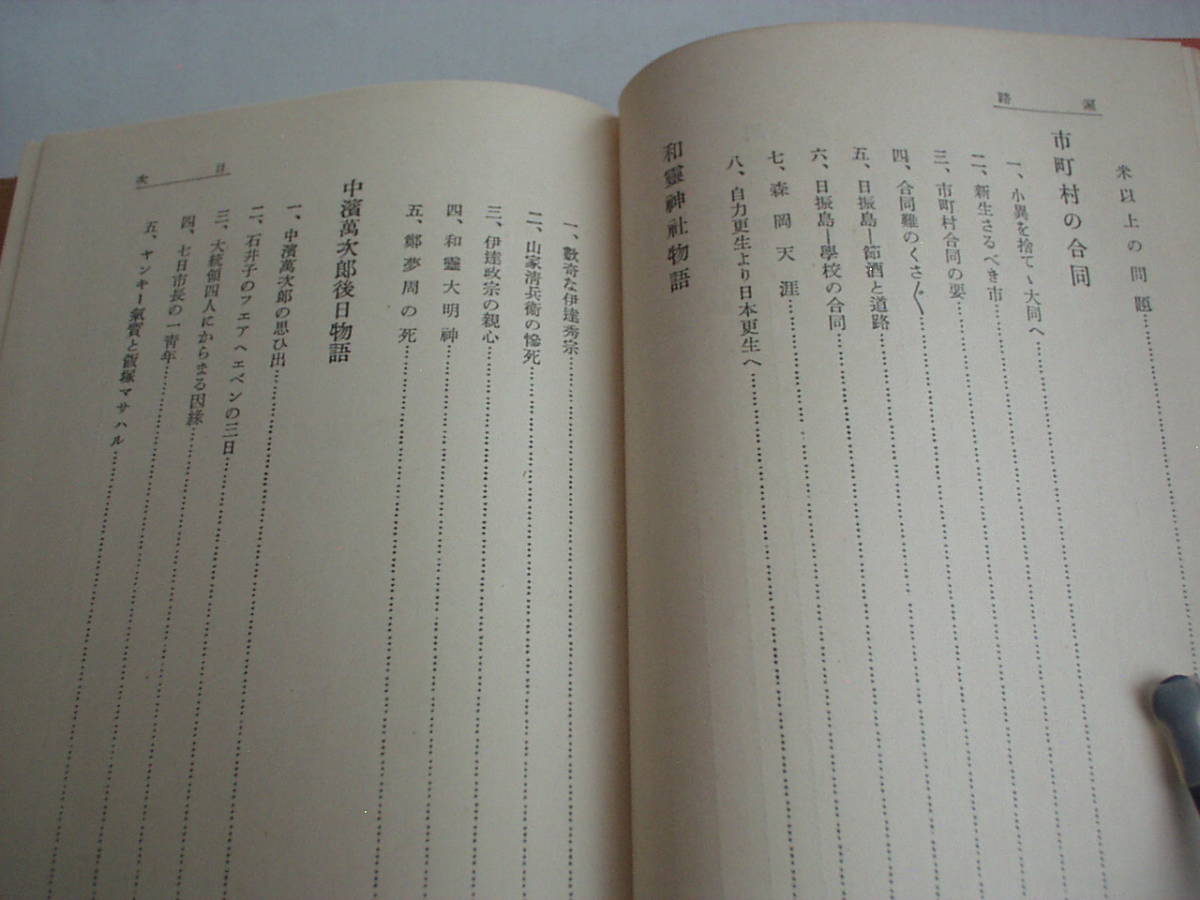 米以上の問題
市町村の合同
一、小異を捨てゝ大同へ
二、新生さるべき市
三、市町村合同の要
四、合同難のくさ〴〵
五、日振島―節酒と道路
六、日振島―學校の合同
七、森岡天涯
八、自力更生より日本更生へ
和靈神社物語
一、數奇な伊達秀宗
二、山家淸兵衞の慘死
三、伊達政宗の親心
四、和靈大明神
五、鄭夢周の死
中濱萬次郞後日物語
一、中濱萬次郞の思ひ出
二、石井子のフエアヘエベンの三日
三、大統領四人にからまる因緣
四、七日市長の一靑年
五、ヤンキー氣質と飯塚マサハル
目次